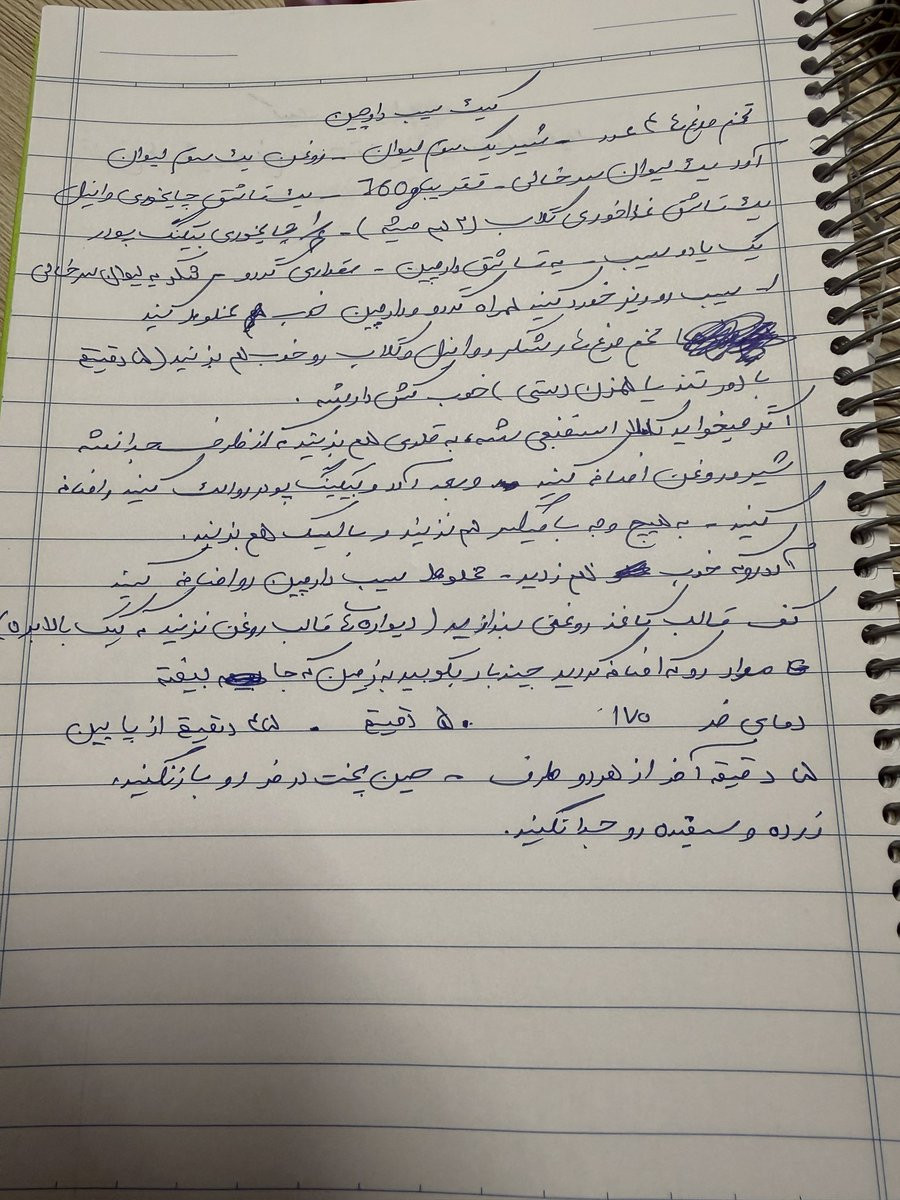 کیک سیب دارچین
تخم مرغ ها ۴ عدد - شیر یک سوم لیوان - روغن یک سوم لیوان
آرد یک لیوان سرخالی - تقریبا 160 - یک قاشق چایخوری وانیل
یک قاشق غذاخوری گلاب (۲ هم میشه) - چایخوری بیکینگ پودر
یک یا دو سیب - یه قاشق دارچین - مقداری گردو - شکر یه لیوان سرخالی
سیب رو ریز خورد کنید همراه گردو و دارچین خوب مخلوط کنید
تخم مرغ ها و شکر و وانیل و گلاب رو خوب هم بزنید (۵ دقیقه
با دور تند یا همزن دستی) خوب کش دار بشه.
اگر میخواید کاملا اسفنجی بشه، به قدری هم بزنید که از ظرف جدا نشه
شیر و روغن اضافه کنید و بعد آرد و بیکینگ پودر رو الک کنید و اضافه
کنید - به هیچ وجه با میکسر هم نزنید و با لیسک هم بزنید.
آرد رو که خوب هم زدید - مخلوط سیب دارچین رو اضافه کنید
کف قالب کاغذ روغنی بندازید (دیواره های قالب روغن نزنید که کیک بالا بره)
مواد رو که اضافه کردید چند بار بکوبید به زمین که جا بیفته
دمای فر ۱۷۵ ۵۰ دقیقه - ۴۵ دقیقه از پایین
۵ دقیقه آخر از هر دو طرف - حین پخت در فر رو باز نکنید.
زرده و سفیده رو جدا نکنید.